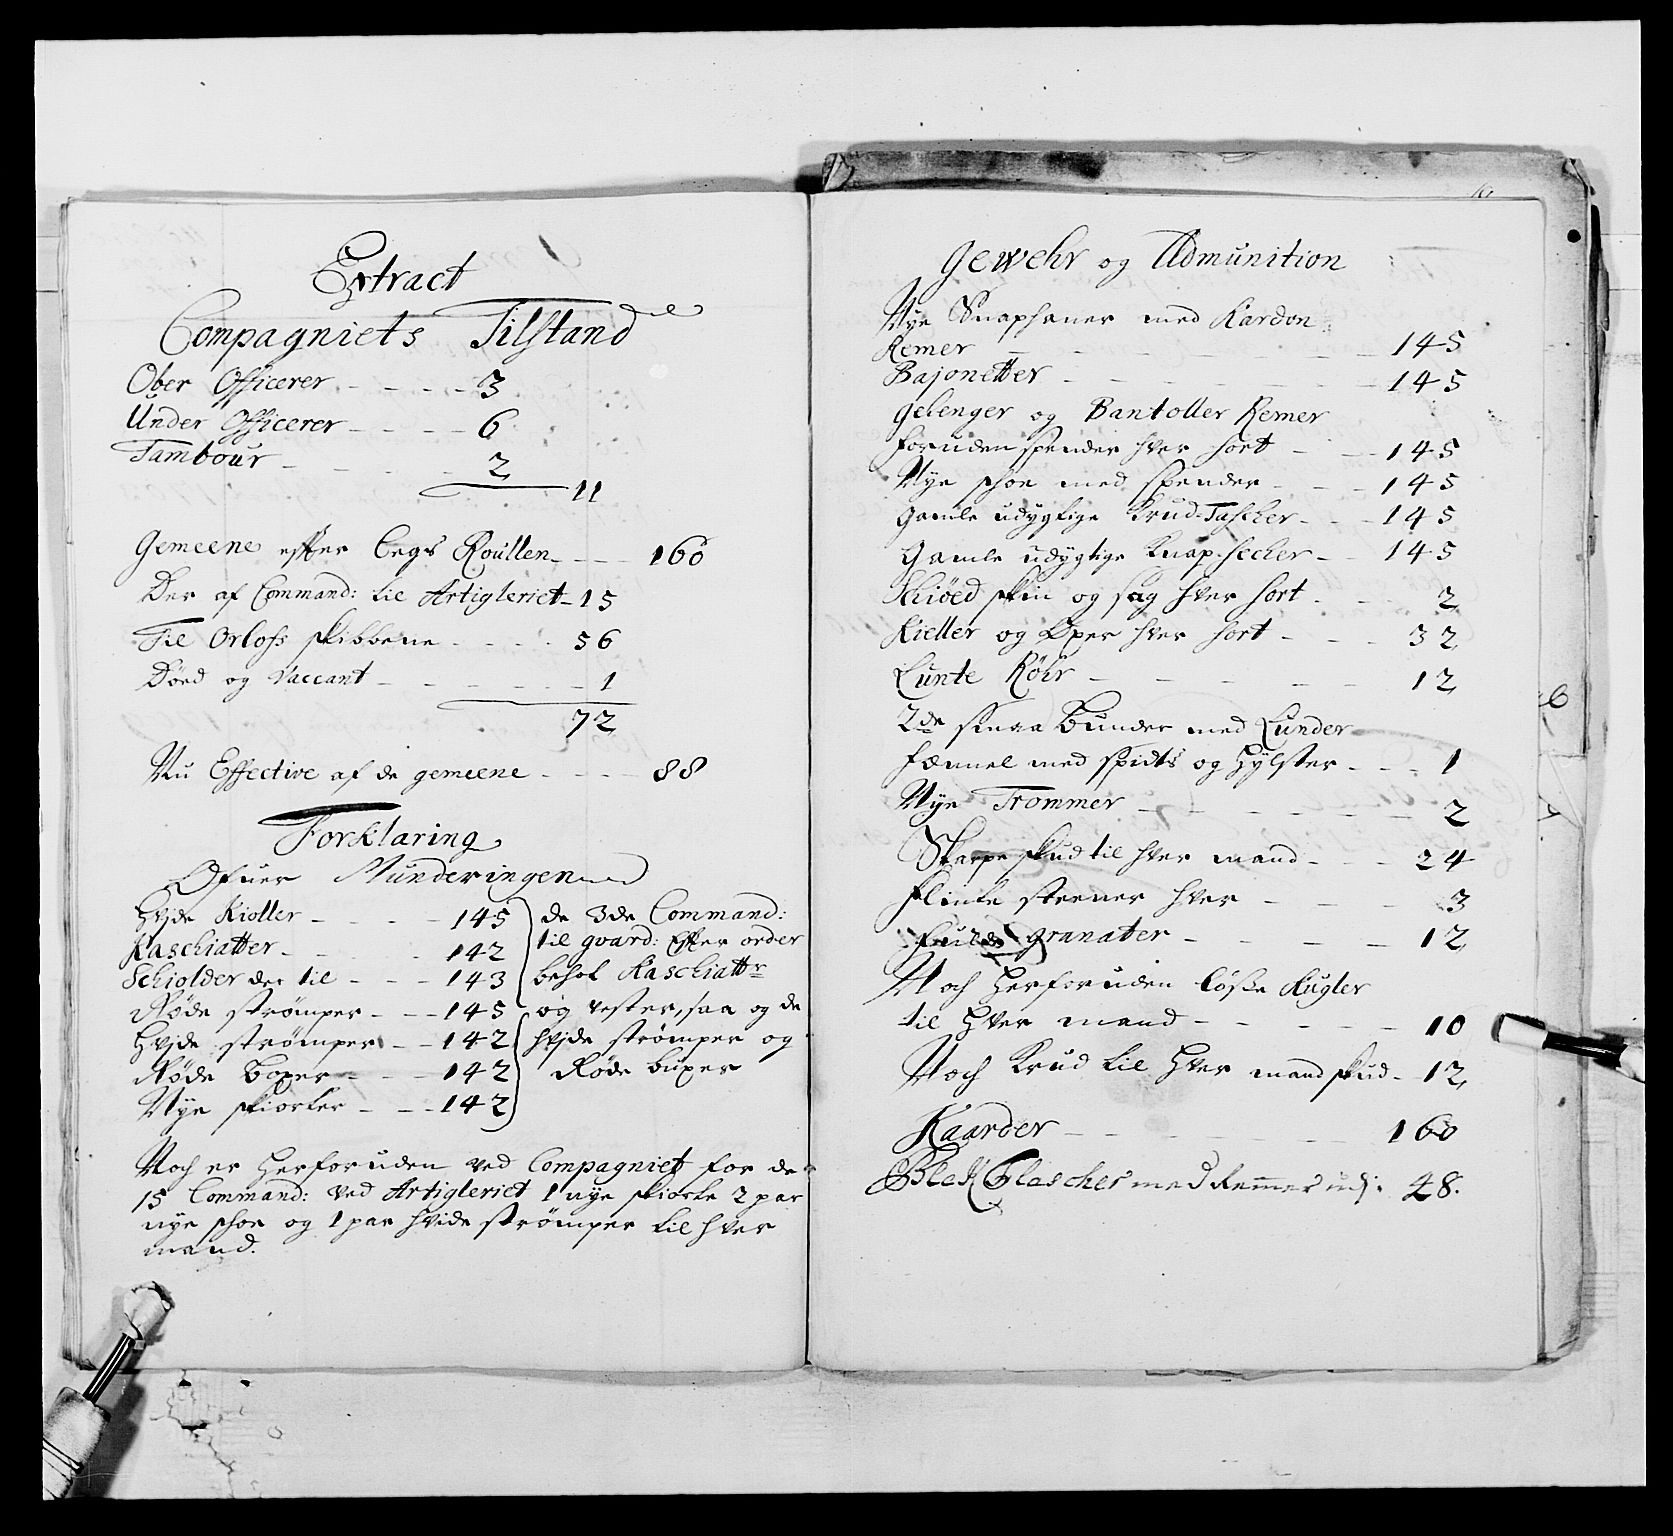 Extract
Compagniets Tilstand
Ober Officerer - - - - 3
Under Officerer - - - - 6
Tambour - - - - 2
11
Gemeene efter Legs Roullen - - - 160
Der af Command: til Artigleriet - 15
Til Orlofs skibbene - - - - 56
Døed og Vaccant - - - - - 1
72
Nu Effective af de gemeene - - - - 88
Forklaring
Ofuer Munderingen
Hvjde Kioller - - - - 145
Kaschiatter - - - - 142
Schiolder der til - - - 143
Røde strømper - - - 145
Hvjde strømper - - 142
Røde boxer - - - 142
Nye skiorter - - - 142
de 3de Command:
til gvard: Efter order
behol Kaschiattr
og vester, saa og de
hvjde strømper og
Røde buxer
Noch er Herforuden ved Compagniet for de
15 Command: ved Artigleriet 1 nye skiorte 2 par
nye schoe og 1 par hvide strømper til hver
mand.
Gewehr og Admunition
Nye Snaphaner med Kardon
Remer - - - - 145
Bajonetter - - - - - 145
Gehenger og Bantoller Remer
foruden spender hver sort - - 145
Nye schoe med spender - - - 145
Gamle udygtige Krud-Tascher - - - 145
Gamle udygtige Knap-secher - - 145
Schiøed skin og sag hver sort - - 2
Kieller og Øxer hver sort - - - 32
Lunte Röhr - - - - - 12
2de smaa Bunder med Lunder
fænnel med spidts og Hylster - - - 1
Nye Trommer - - - - - 2
Skarpe skud til hver mand - - - 24
flinte steener hver - - - - 3
Fulde Granater - - - - 12
Noch Herforuden løsse Kugler
til Hver mand - - - - - 10
Noch Krud til Hver mand skud - 12
Kaarder - - - - - - 160
Blek Flascher med Remmer udj: 48.